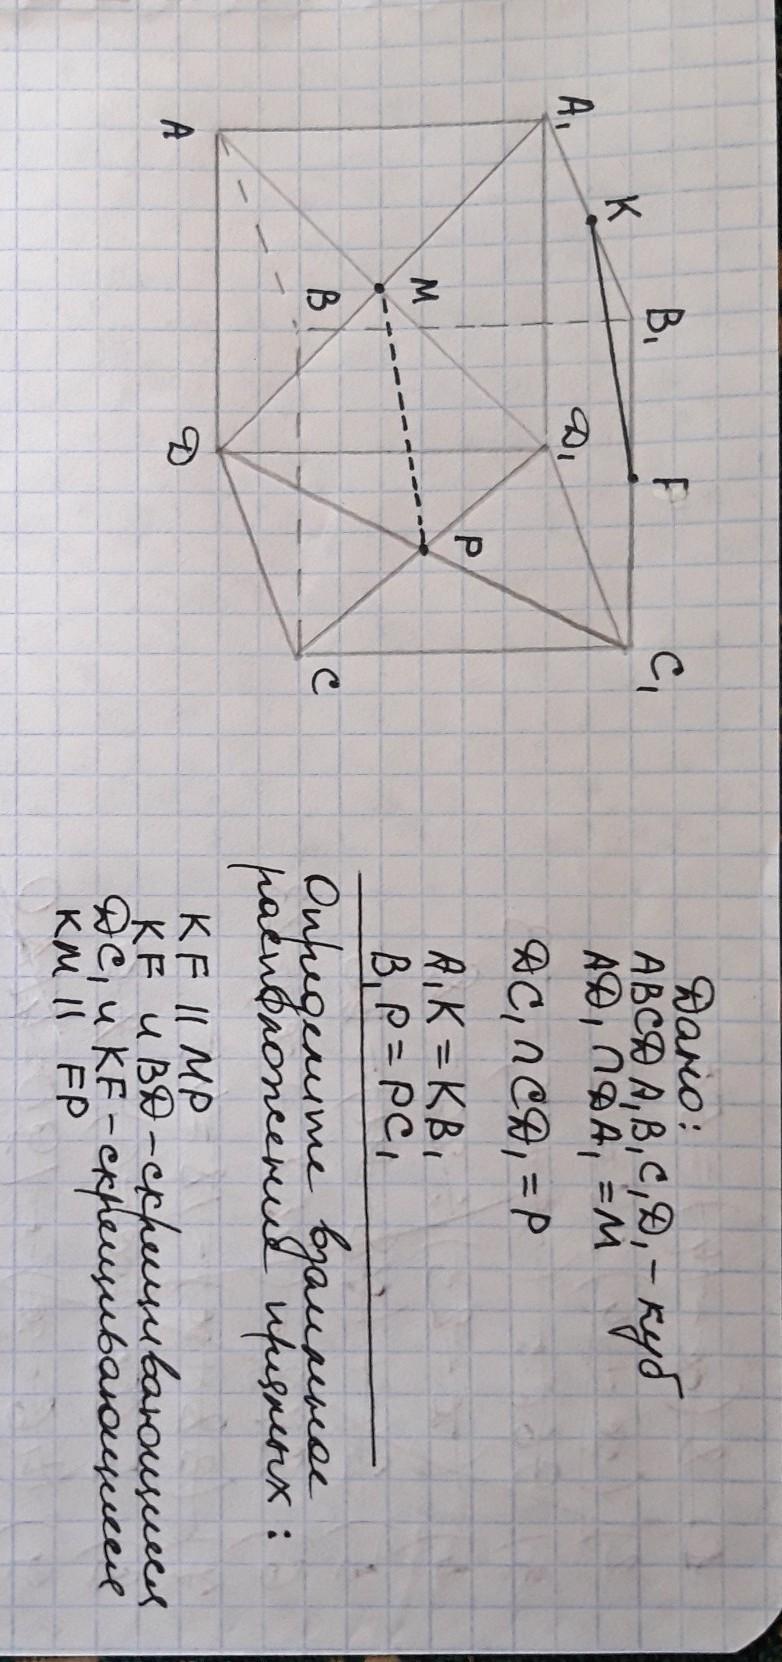 A₁
K
B₁
F
C₁
D₁
M
P
B
A
Д
C
Дано:
ABCDA₁B₁C₁D₁ - куб
AD₁ ∩ DA₁ = M
DC₁ ∩ CD₁ = P
A₁K = KB₁
B₁P = PC₁
Определите взаимное
расположение прямых:
KF || MP
KF и BD - скрещивающиеся
DC₁ и KF - скрещивающиеся
KM || FP